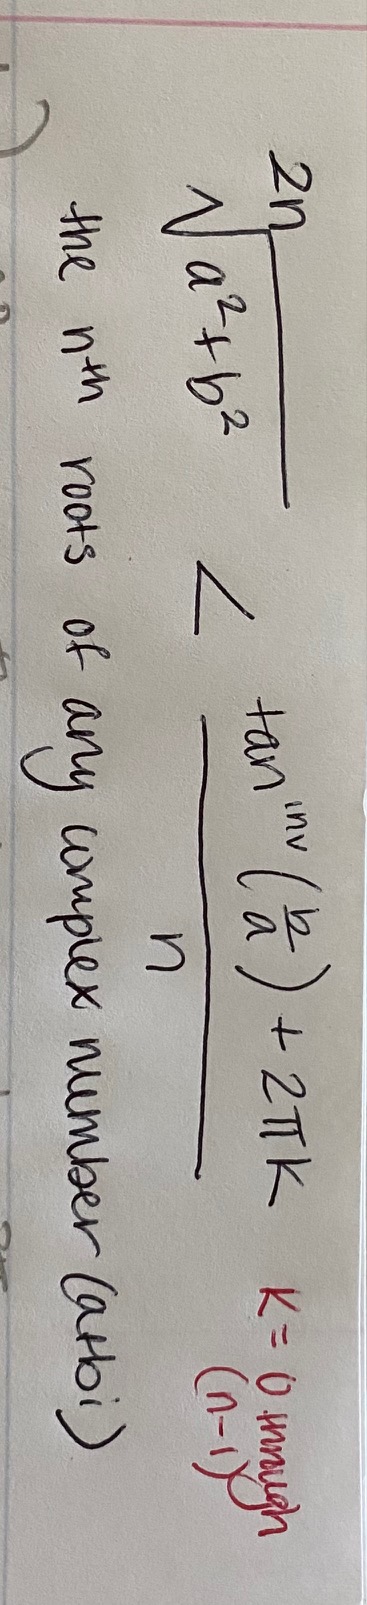 2n√a²+b² ∠ tan^inv (b/a) + 2πk / n k = 0 through (n-1)
the nth roots of any complex number (a+bi)